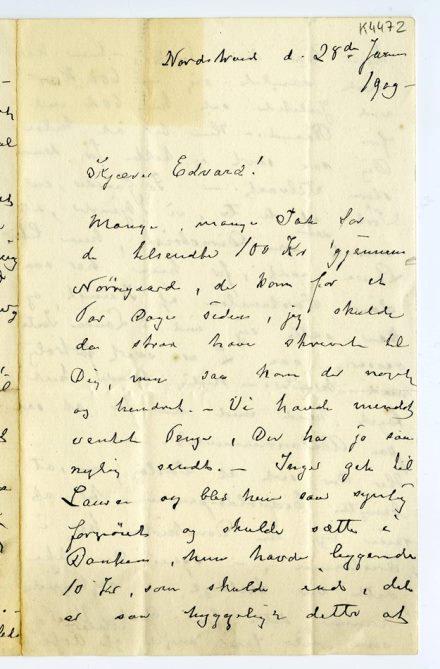 K4472
Nordstrand d. 28de Juni
1909 -
Kjære Edvard!
Mange, mange Tak for
de tilsendte 100 Kr gjennem
Nörregaard, de kom for et
Par Dage siden, jeg skulde
da straa have skrevet til
Dig, men saa kom der noget
og hindret. – Vi havde
ventet Penge, Du har jo saa
nylig sendt. – Inger gik til
Laura og blev hun saa synlig
fornöiet og skulde sætte i
Banken, hun havde liggende
10 Kr, som skulde ind, det
er saa hyggelig dette at